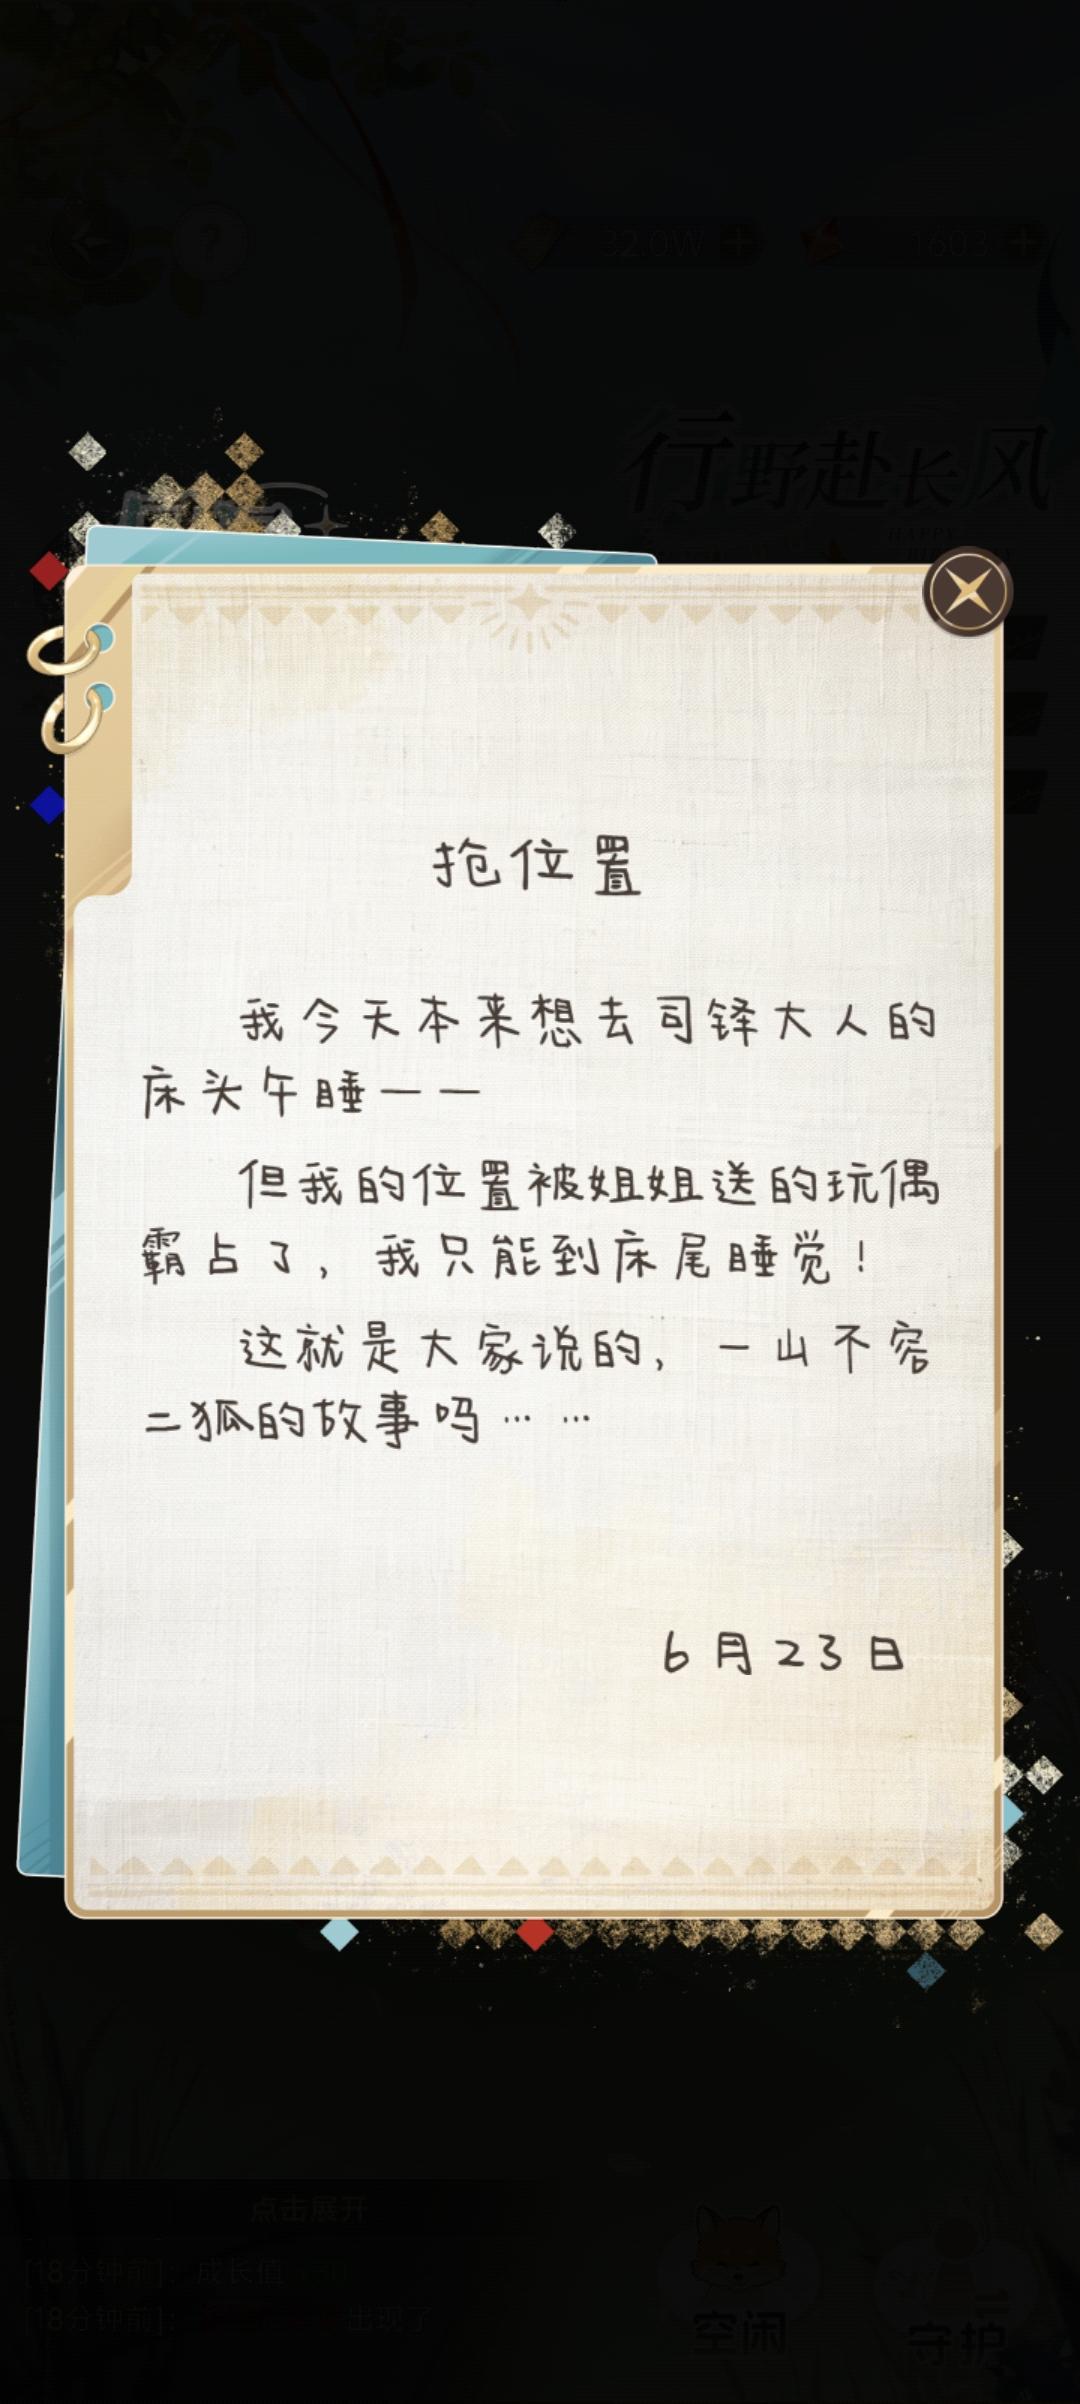 32.0W
1603
行野赴长风
HAPPY
抢位置
我今天本来想去司铎大人的
床头午睡——
但我的位置被姐姐送的玩偶
霸占了，我只能到床尾睡觉！
这就是大家说的，一山不容
二狐的故事吗……
6月23日
点击展开
[18分钟前]：成长值
[18分钟前]：
出现了
空闲
守护